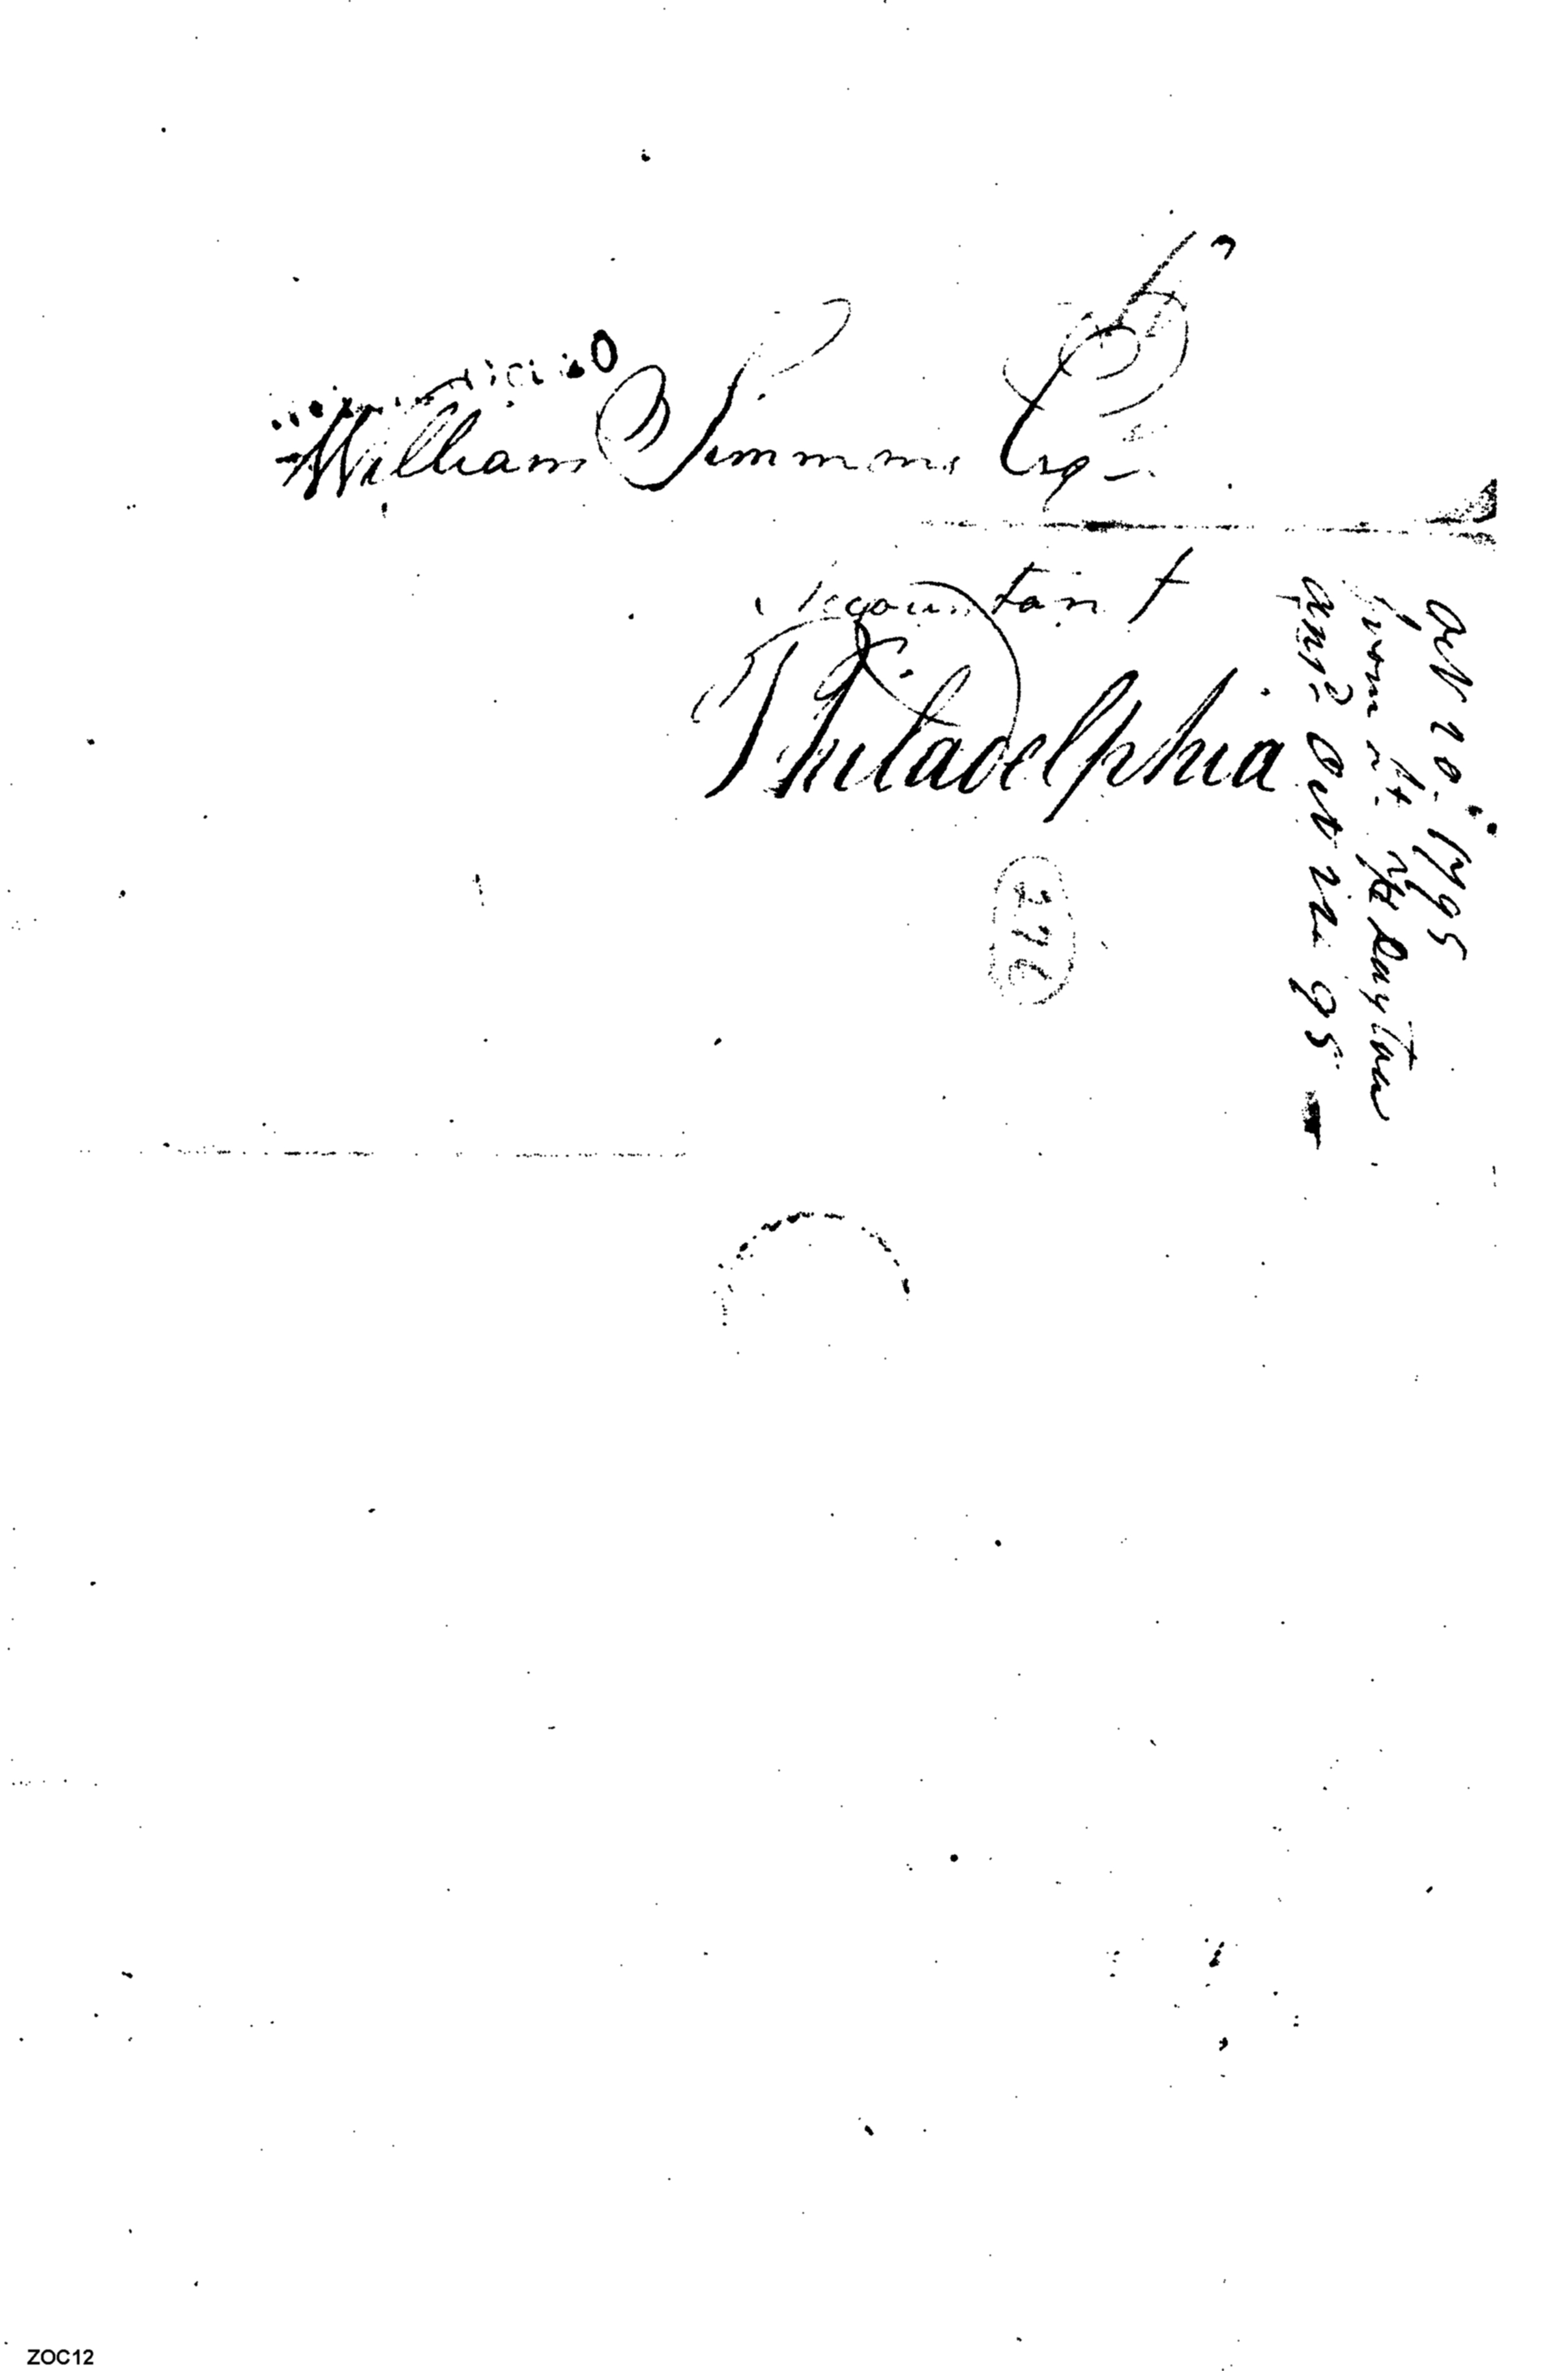 William Simmons Esq
Accountant
Philadelphia
Oct 20. 1795
from
ansd Oct 21 95
ZOC12